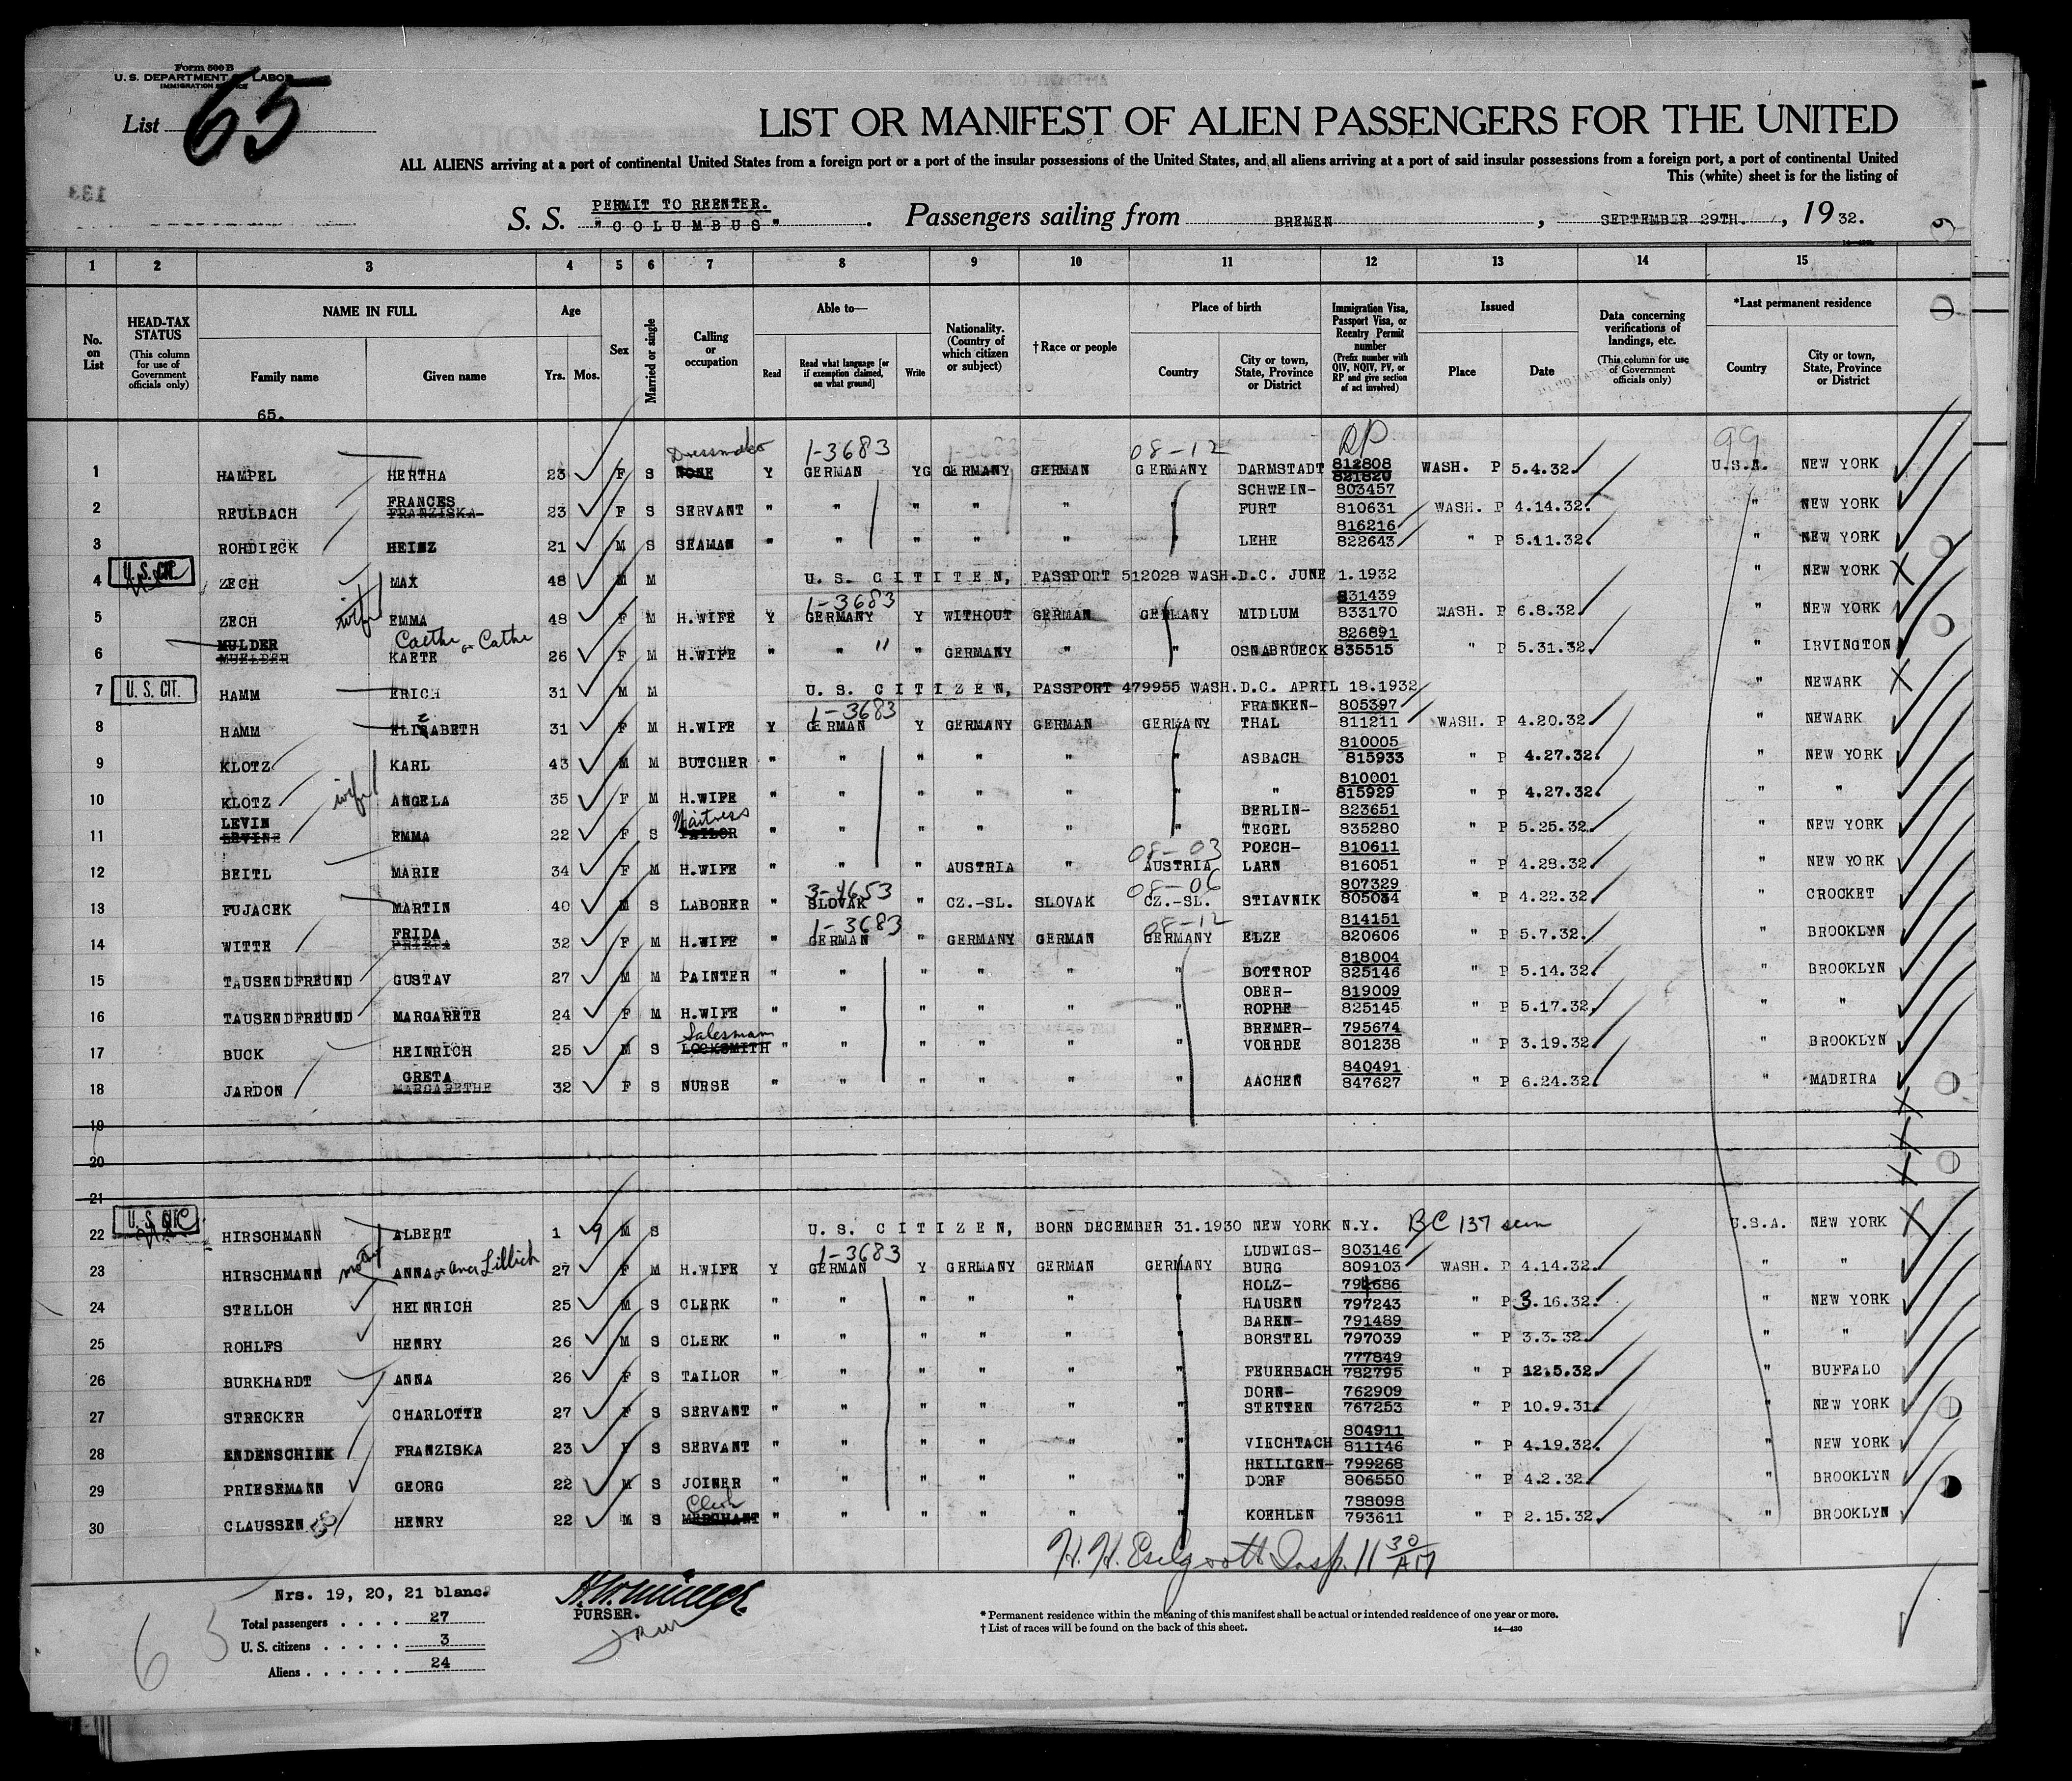 Form 500 B
U. S. DEPARTMENT OF LABOR
IMMIGRATION SERVICE
List 65
LIST OR MANIFEST OF ALIEN PASSENGERS FOR THE UNITED
ALL ALIENS arriving at a port of continental United States from a foreign port or a port of the insular possessions of the United States, and all aliens arriving at a port of said insular possessions from a foreign port, a port of continental United
This (white) sheet is for the listing of
PERMIT TO REENTER.
S. S. "COLUMBUS". Passengers sailing from BREMEN, SEPTEMBER 29TH., 1932.
1 2 3 4 5 6 7 8 9 10 11 12 13 14 15
No. on List
HEAD-TAX STATUS (This column for use of Government officials only)
NAME IN FULL
Family name Given name
Age
Yrs. Mos.
Sex
Married or single
Calling or occupation
Able to—
Read
Read what language [or if exemption claimed, on what ground]
Write
Nationality. (Country of which citizen or subject)
† Race or people
Place of birth
Country
City or town, State, Province or District
Immigration Visa, Passport Visa, or Reentry Permit number (Prefix number with QIV, NQIV, PV, or RP and give section of act involved)
Issued
Place Date
Data concerning verifications of landings, etc. (This column for use of Government officials only)
*Last permanent residence
Country
City or town, State, Province or District
65.
Dressmaker 1-3683 08-12 RP 99
1 HAMPEL HERTHA 23 F S NONE Y GERMAN YG GERMANY GERMAN GERMANY DARMSTADT 812808 821820 WASH. P 5.4.32. U.S.A. NEW YORK
2 REULBACH FRANCES FRANZISKA 23 F S SERVANT " " " " " " SCHWEIN-FURT 803457 810631 WASH. P 4.14.32. " NEW YORK
3 ROHDIECK HEINZ 21 M S SEAMAN " " " " " " LEHE 816216 822643 " P 5.11.32. " NEW YORK
U. S. CIT.
4 ZECH MAX 48 M M U. S. CITITEN, PASSPORT 512028 WASH.D.C. JUNE 1.1932 " NEW YORK
1-3683
5 ZECH wife EMMA 48 F M H.WIFE Y GERMANY Y WITHOUT GERMAN GERMANY MIDLUM 831439 833170 WASH. P 6.8.32. " NEW YORK
6 MULDER MUELDER Caethe or Cathe KAETE 26 F M H.WIFE " " " GERMANY " " OSNABRUECK 826891 835515 " P 5.31.32. " IRVINGTON
U. S. CIT.
7 HAMM ERICH 31 M M U. S. CITIZEN, PASSPORT 479955 WASH.D.C. APRIL 18.1932 " NEWARK
1-3683
8 HAMM ELISABETH z 31 F M H.WIFE Y GERMAN Y GERMANY GERMAN GERMANY FRANKEN-THAL 805397 811211 WASH. P 4.20.32. " NEWARK
9 KLOTZ KARL 43 M M BUTCHER " " " " " " ASBACH 810005 815933 " P 4.27.32. " NEW YORK
10 KLOTZ wife ANGELA 35 F M H.WIFE " " " " " " " 810001 815929 " P 4.27.32. " "
11 LEVIN LEVINE EMMA 22 F S Waitress TAILOR " " " " " " BERLIN-TEGEL 823651 835280 " P 5.25.32. " NEW YORK
08-03
12 BEITL MARIE 34 F M H.WIFE " " " AUSTRIA " AUSTRIA POECH-LARN 810611 816051 " P 4.28.32. " NEW YORK
3-4653 08-06
13 FUJACEK MARTIN 40 M S LABORER " SLOVAK " CZ.-SL. SLOVAK CZ.-SL. STIAVNIK 807329 805034 " P 4.22.32. " CROCKET
1-3683 08-12
14 WITTE FRIDA FRIEDA 32 F M H.WIFE " GERMAN " GERMANY GERMAN GERMANY ELZE 814151 820606 " P 5.7.32. " BROOKLYN
15 TAUSENDFREUND GUSTAV 27 M M PAINTER " " " " " " BOTTROP 818004 825146 " P 5.14.32. " BROOKLYN
16 TAUSENDFREUND MARGARETE 24 F M H.WIFE " " " " " " OBER-ROPHE 819009 825145 " P 5.17.32. " "
17 BUCK HEINRICH 25 M S Salesman LOCKSMITH " " " " " " BREMER-VOERDE 795674 801238 " P 3.19.32. " BROOKLYN
18 JARDON GRETA MARGARETHE 32 F S NURSE " " " " " " AACHEN 840491 847627 " P 6.24.32. " MADEIRA
19
20
21
U. S. CIT.
22 HIRSCHMANN ALBERT 1 9 M S U. S. CITIZEN, BORN DECEMBER 31.1930 NEW YORK N.Y. BC 137 seen U.S.A. NEW YORK
1-3683
23 HIRSCHMANN mother ANNA or Anna Lillich 27 F M H.WIFE Y GERMAN Y GERMANY GERMAN GERMANY LUDWIGS-BURG 803146 809103 WASH. P 4.14.32. " "
24 STELLOH HEINRICH 25 M S CLERK " " " " " " HOLZ-HAUSEN 794686 797243 " P 3.16.32. " NEW YORK
25 ROHLFS HENRY 26 M S CLERK " " " " " " BAREN-BORSTEL 791489 797039 " P 3.3.32. " "
26 BURKHARDT ANNA 26 F S TAILOR " " " " " " FEUERBACH 777849 782795 " P 12.5.32. " BUFFALO
27 STRECKER CHARLOTTE 27 F S SERVANT " " " " " " DORN-STETTEN 762909 767253 " P 10.9.31. " NEW YORK
28 ENDENSCHINK FRANZISKA 23 F S SERVANT " " " " " " VIECHTACH 804911 811146 " P 4.19.32. " NEW YORK
29 PRIESEMANN GEORG 22 M S JOINER " " " " " " HEILIGEN-DORF 799268 806550 " P 4.2.32. " BROOKLYN
30 CLAUSSEN HENRY 22 M S Clerk MERCHANT " " " " " " KOEHLEN 788098 793611 " P 2.15.32. " BROOKLYN
Insp. 11 30 AM
Nrs. 19, 20, 21 blanc.
Total passengers . . . . 27
U. S. citizens . . . . . 3
Aliens . . . . . . 24
PURSER.
65
* Permanent residence within the meaning of this manifest shall be actual or intended residence of one year or more.
† List of races will be found on the back of this sheet. 14—430